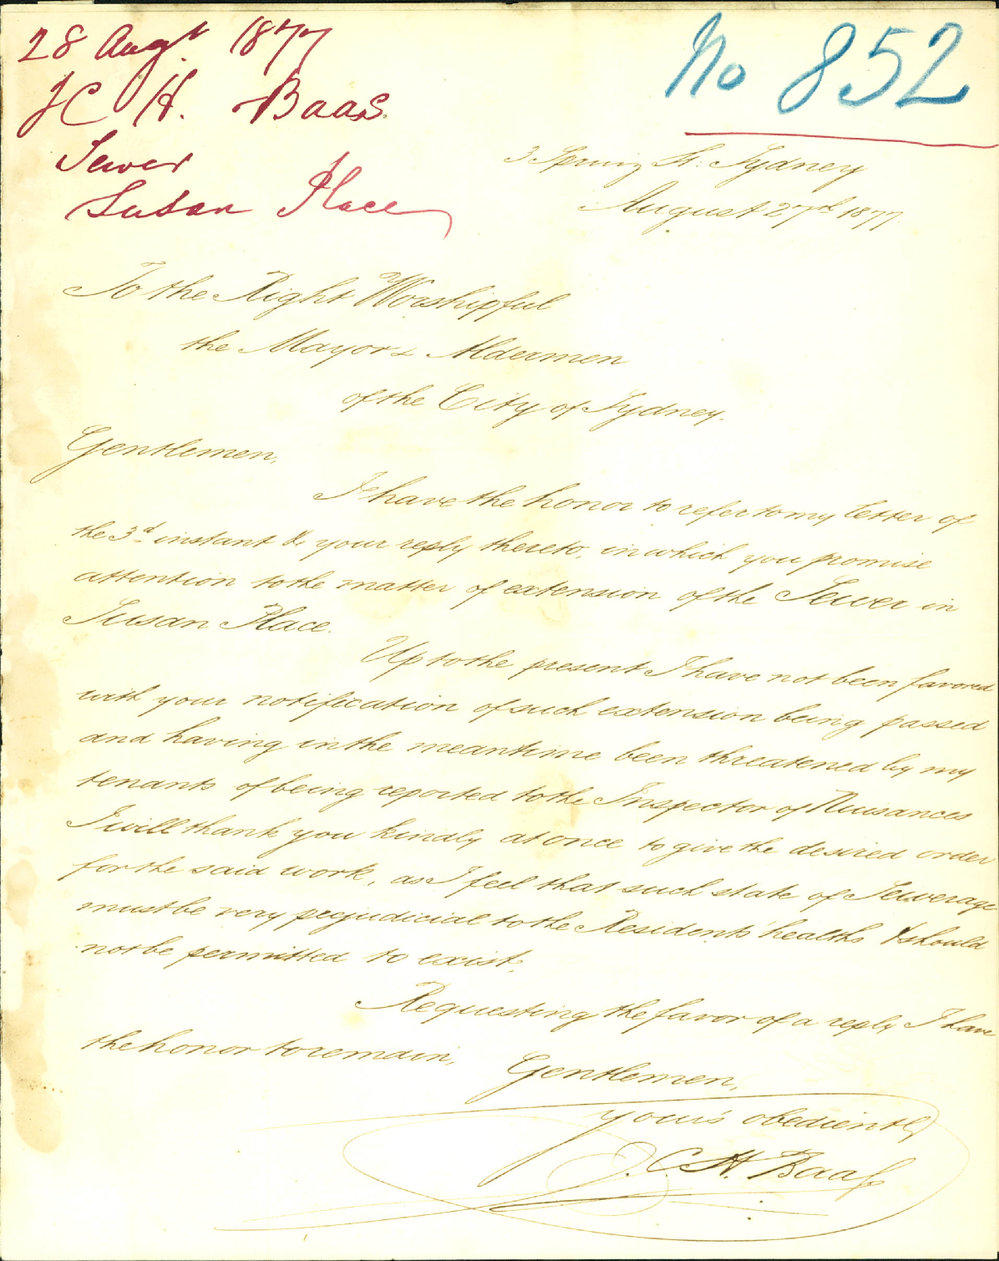 28 Augt 1877
J C H. Baass
Sewer
Susan Place
No 852
3 Spring St. Sydney
August 27th 1877.
To the Right Worshipful
the Mayor & Aldermen
of the City of Sydney.
Gentlemen,
I have the honor to refer to my letter of
the 3d instant & your reply thereto, in which you promise
attention to the matter of extension of the Sewer in
Susan Place.
Up to the present I have not been favored
with your notification of such extension being passed
and having in the meantime been threatened by my
tenants of being reported to the Inspector of Nuisances
I will thank you kindly at once to give the desired order
for the said work, as I feel that such state of Sewerage
must be very prejudicial to the Residents' healths & should
not be permitted to exist.
Requesting the favor of a reply I have
the honor to remain,
Gentlemen,
Your's obediently
J. C. H. Baass